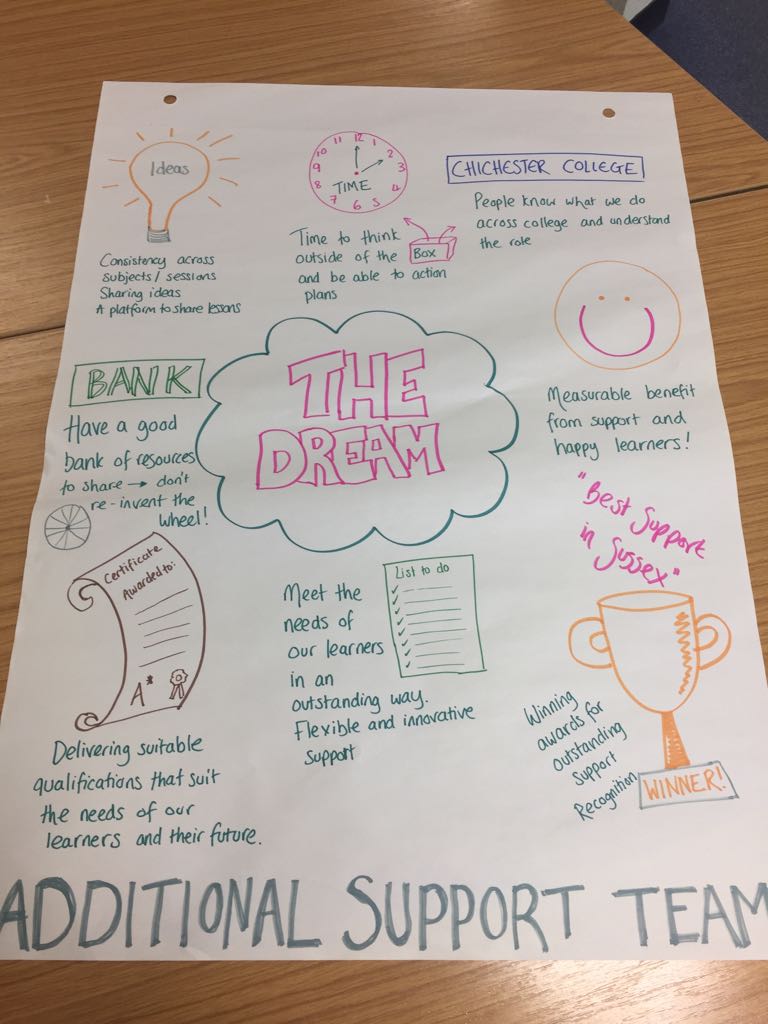 Ideas
Consistency across
subjects/ sessions
Sharing ideas
A platform to share lessons
12
1
2
3
4
5
6
7
8
9
10
11
TIME
Time to think
outside of the
Box
and be able to action
plans
CHICHESTER COLLEGE
People know what we do
across college and understand
the role
Measurable benefit
from support and
happy learners!
BANK
Have a good
bank of resources
to share → don't
re-invent the
wheel!
THE
DREAM
"Best Support
in Sussex"
Certificate
Awarded to:
A*
Delivering suitable
qualifications that suit
the needs of our
learners and their future.
Meet the
needs of
our learners
in an
outstanding way.
Flexible and innovative
support
List to do
Winning
awards for
outstanding
support
Recognition
WINNER!
ADDITIONAL SUPPORT TEAM